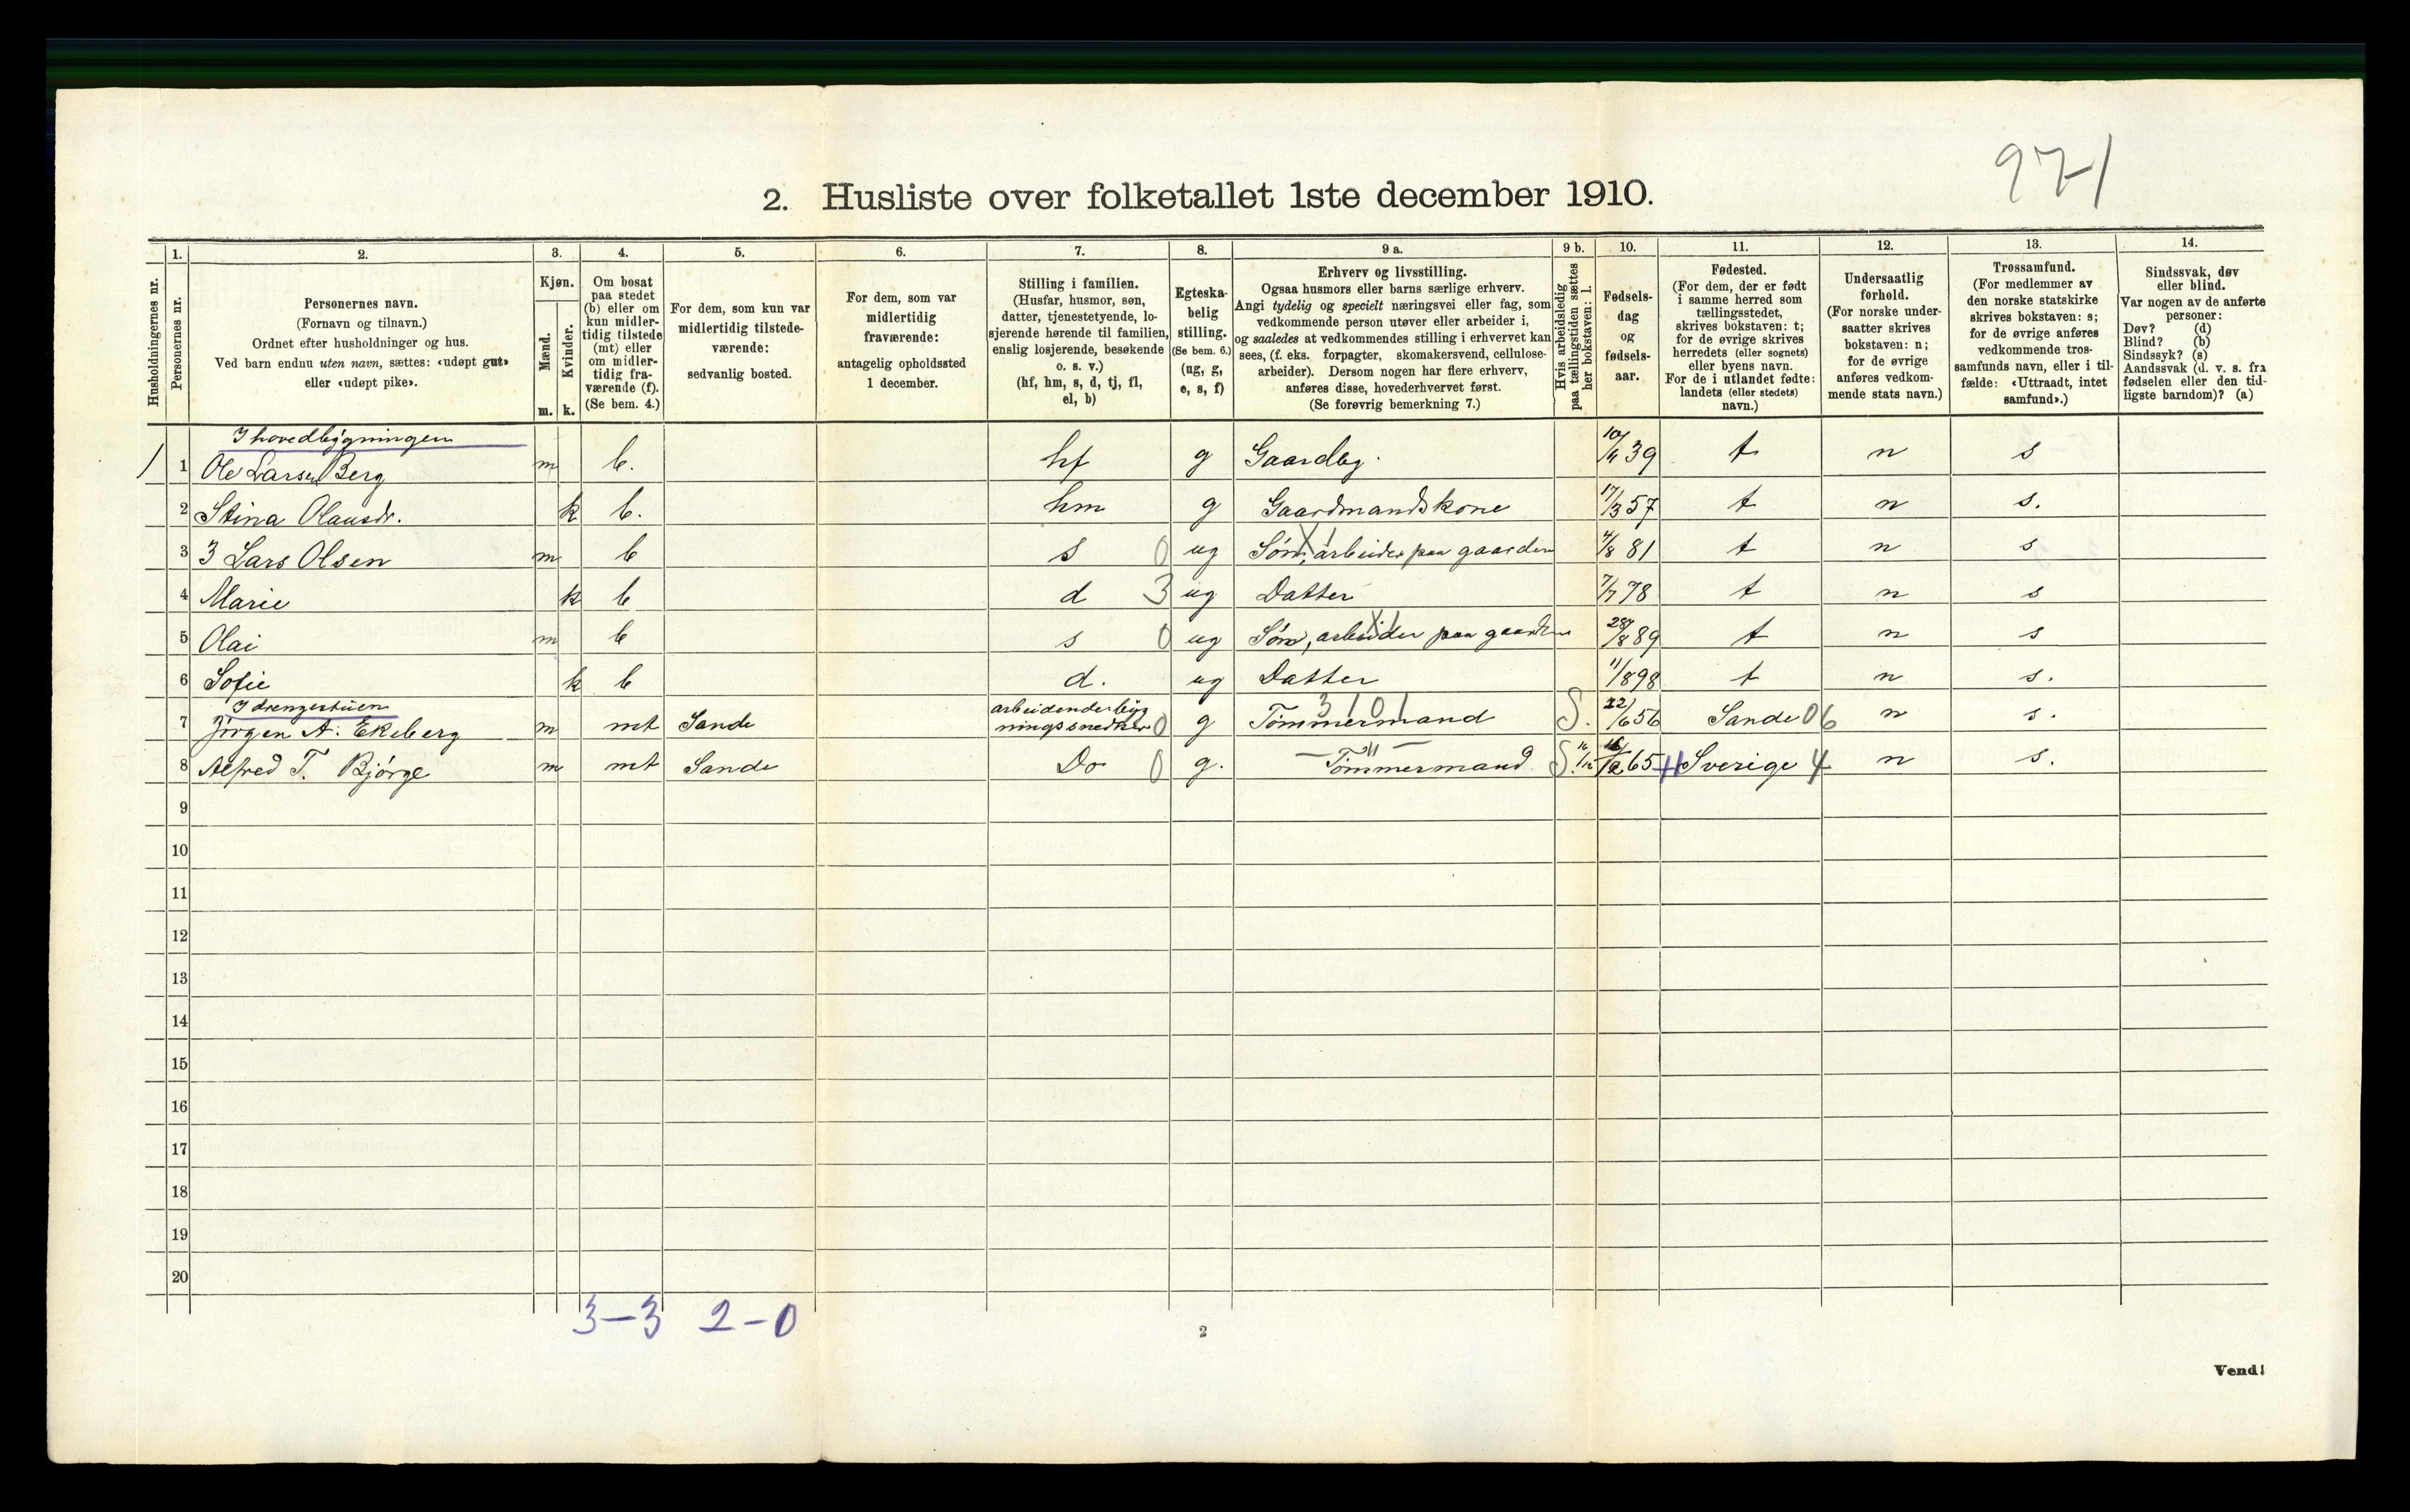 971
2. Husliste over folketallet 1ste december 1910.
Husholdningernes nr.
1.
Personernes nr.
2.
Personernes navn.
(Fornavn og tilnavn.)
Ordnet efter husholdninger og hus.
Ved barn endnu uten navn, sættes: «udøpt gut»
eller «udøpt pike».
3.
Kjøn.
Mænd.
Kvinder.
m. k.
4.
Om bosat
paa stedet
(b) eller om
kun midler-
tidig tilstede
(mt) eller
om midler-
tidig fra-
værende (f).
(Se bem. 4.)
5.
For dem, som kun var
midlertidig tilstede-
værende:
sedvanlig bosted.
6.
For dem, som var
midlertidig
fraværende:
antagelig opholdssted
1 december.
7.
Stilling i familien.
(Husfar, husmor, søn,
datter, tjenestetyende, lo-
sjerende hørende til familien,
enslig losjerende, besøkende
o. s. v.)
(hf, hm, s, d, tj, fl,
el, b)
8.
Egteska-
belig
stilling.
(Se bem. 6.)
(ug, g,
e, s, f)
9 a.
Erhverv og livsstilling.
Ogsaa husmors eller barns særlige erhverv.
Angi tydelig og specielt næringsvei eller fag, som
vedkommende person utøver eller arbeider i,
og saaledes at vedkommendes stilling i erhvervet kan
sees, (f. eks. forpagter, skomakersvend, cellulose-
arbeider). Dersom nogen har flere erhverv,
anføres disse, hovederhvervet først.
(Se forøvrig bemerkning 7.)
9 b.
Hvis arbeidsledig
paa tællingstiden sættes
her bokstaven: l.
10.
Fødsels-
dag
og
fødsels-
aar.
11.
Fødested.
(For dem, der er født
i samme herred som
tællingsstedet,
skrives bokstaven: t;
for de øvrige skrives
herredets (eller sognets)
eller byens navn.
For de i utlandet fødte:
landets (eller stedets)
navn.)
12.
Undersaatlig
forhold.
(For norske under-
saatter skrives
bokstaven: n;
for de øvrige
anføres vedkom-
mende stats navn.)
13.
Trossamfund.
(For medlemmer av
den norske statskirke
skrives bokstaven: s;
for de øvrige anføres
vedkommende tros-
samfunds navn, eller i til-
fælde: «Uttraadt, intet
samfund».)
14.
Sindssvak, døv
eller blind.
Var nogen av de anførte
personer:
Døv? (d)
Blind? (b)
Sindssyk? (s)
Aandssvak (d. v. s. fra
fødselen eller den tid-
ligste barndom)? (a)
I hovedbygningen
1 Ole Larsen Berg m b. hf g Gaardbg. 39 t n s
2 Stina Olausdr. k b. hm g Gaardmandskone 17/3 57 t n s.
3 3 Lars Olsen m b s 0 ug Søn, arbeider paa gaarden 4/8 81 t n s
4 Marie k b d 3 ug Datter 7/7 78 t n s
5 Olai m b s 0 ug Søn, arbeider paa gaarden 28/8 89 t n s
6 Sofie k b d. ug Datter 11/8 98 t n s.
I drengestuen
7 Jörgen A. Ekeberg m mt Sande arbeidende byg
ningssnedker 0 g Tømmermand 3101 S. 22/6 56 Sande 06 n s.
8 Alfred T. Bjørge m mt Sande Do 0 g. Tømmermand 65 Sverige 4 n s.
9
10
11
12
13
14
15
16
17
18
19
20
3-3 2-0
2
Vend!